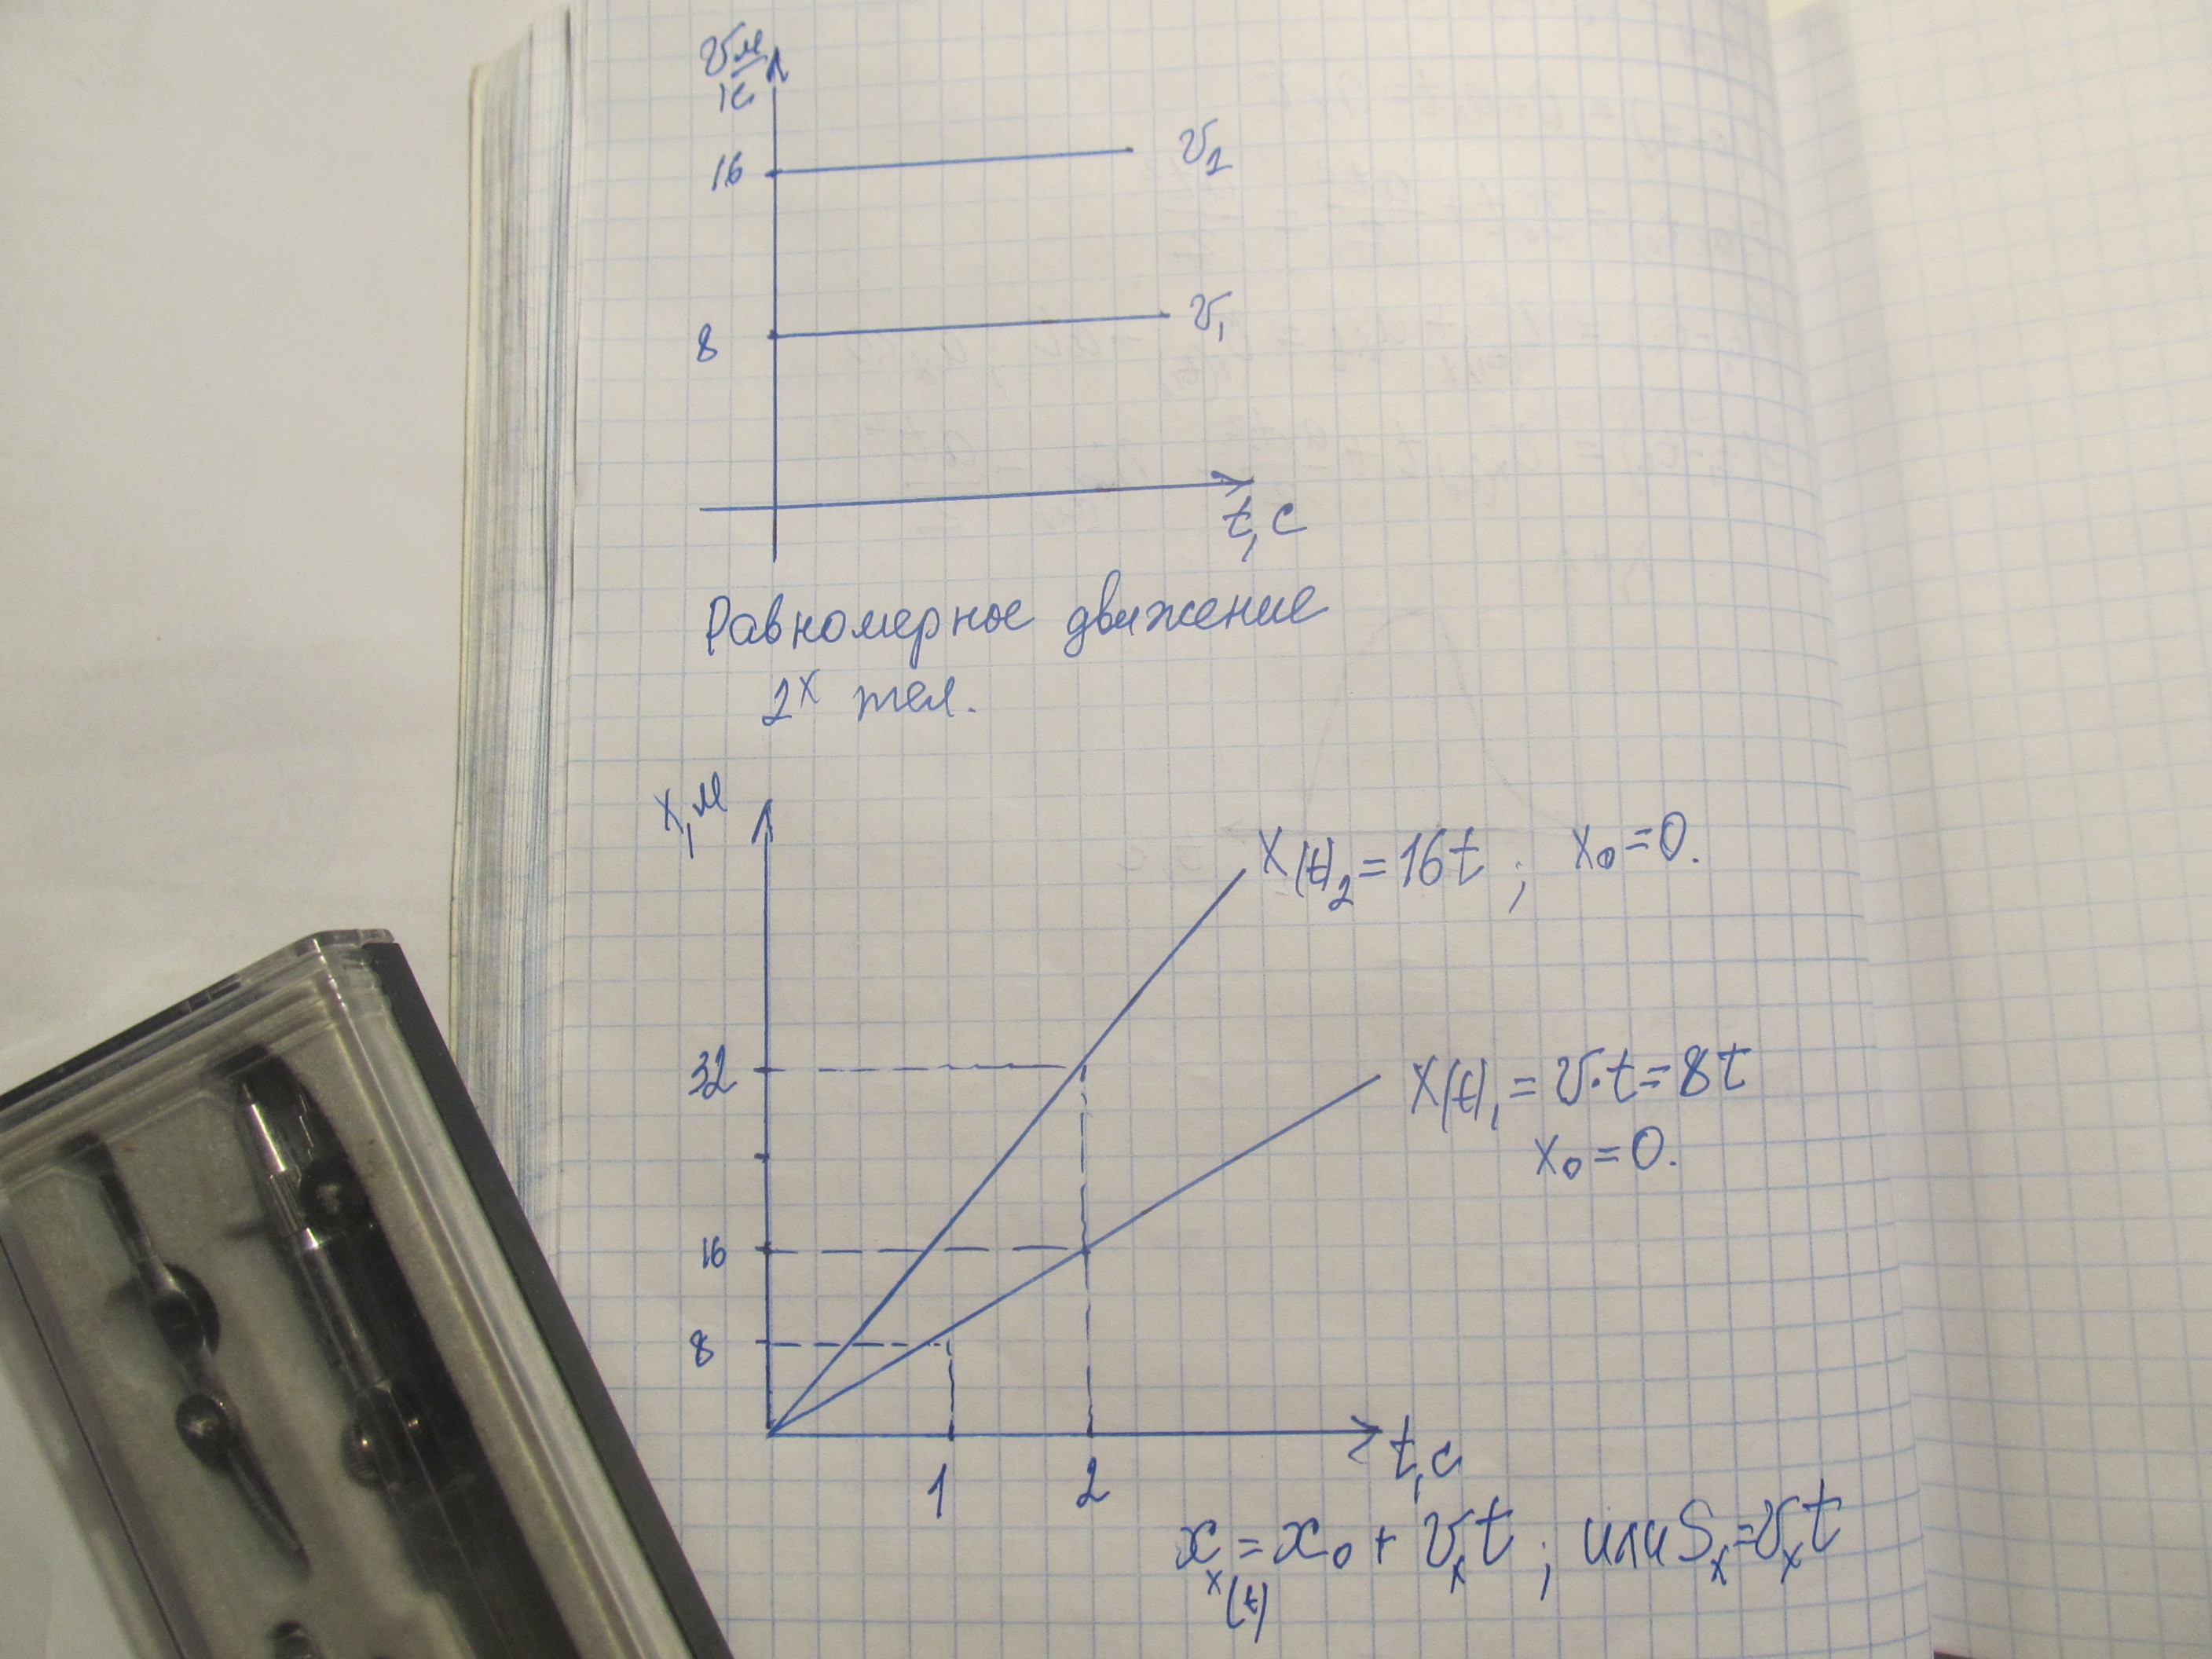 v м/с
16
v₂
8
v₁
t, с
Равномерное движение
2ˣ тел.
x, м
x(t)₂ = 16t ; x₀ = 0.
32
x(t)₁ = v·t = 8t
x₀ = 0.
16
8
1
2
t, с
xₓ(t) = x₀ + vₓt ; или Sₓ = vₓt